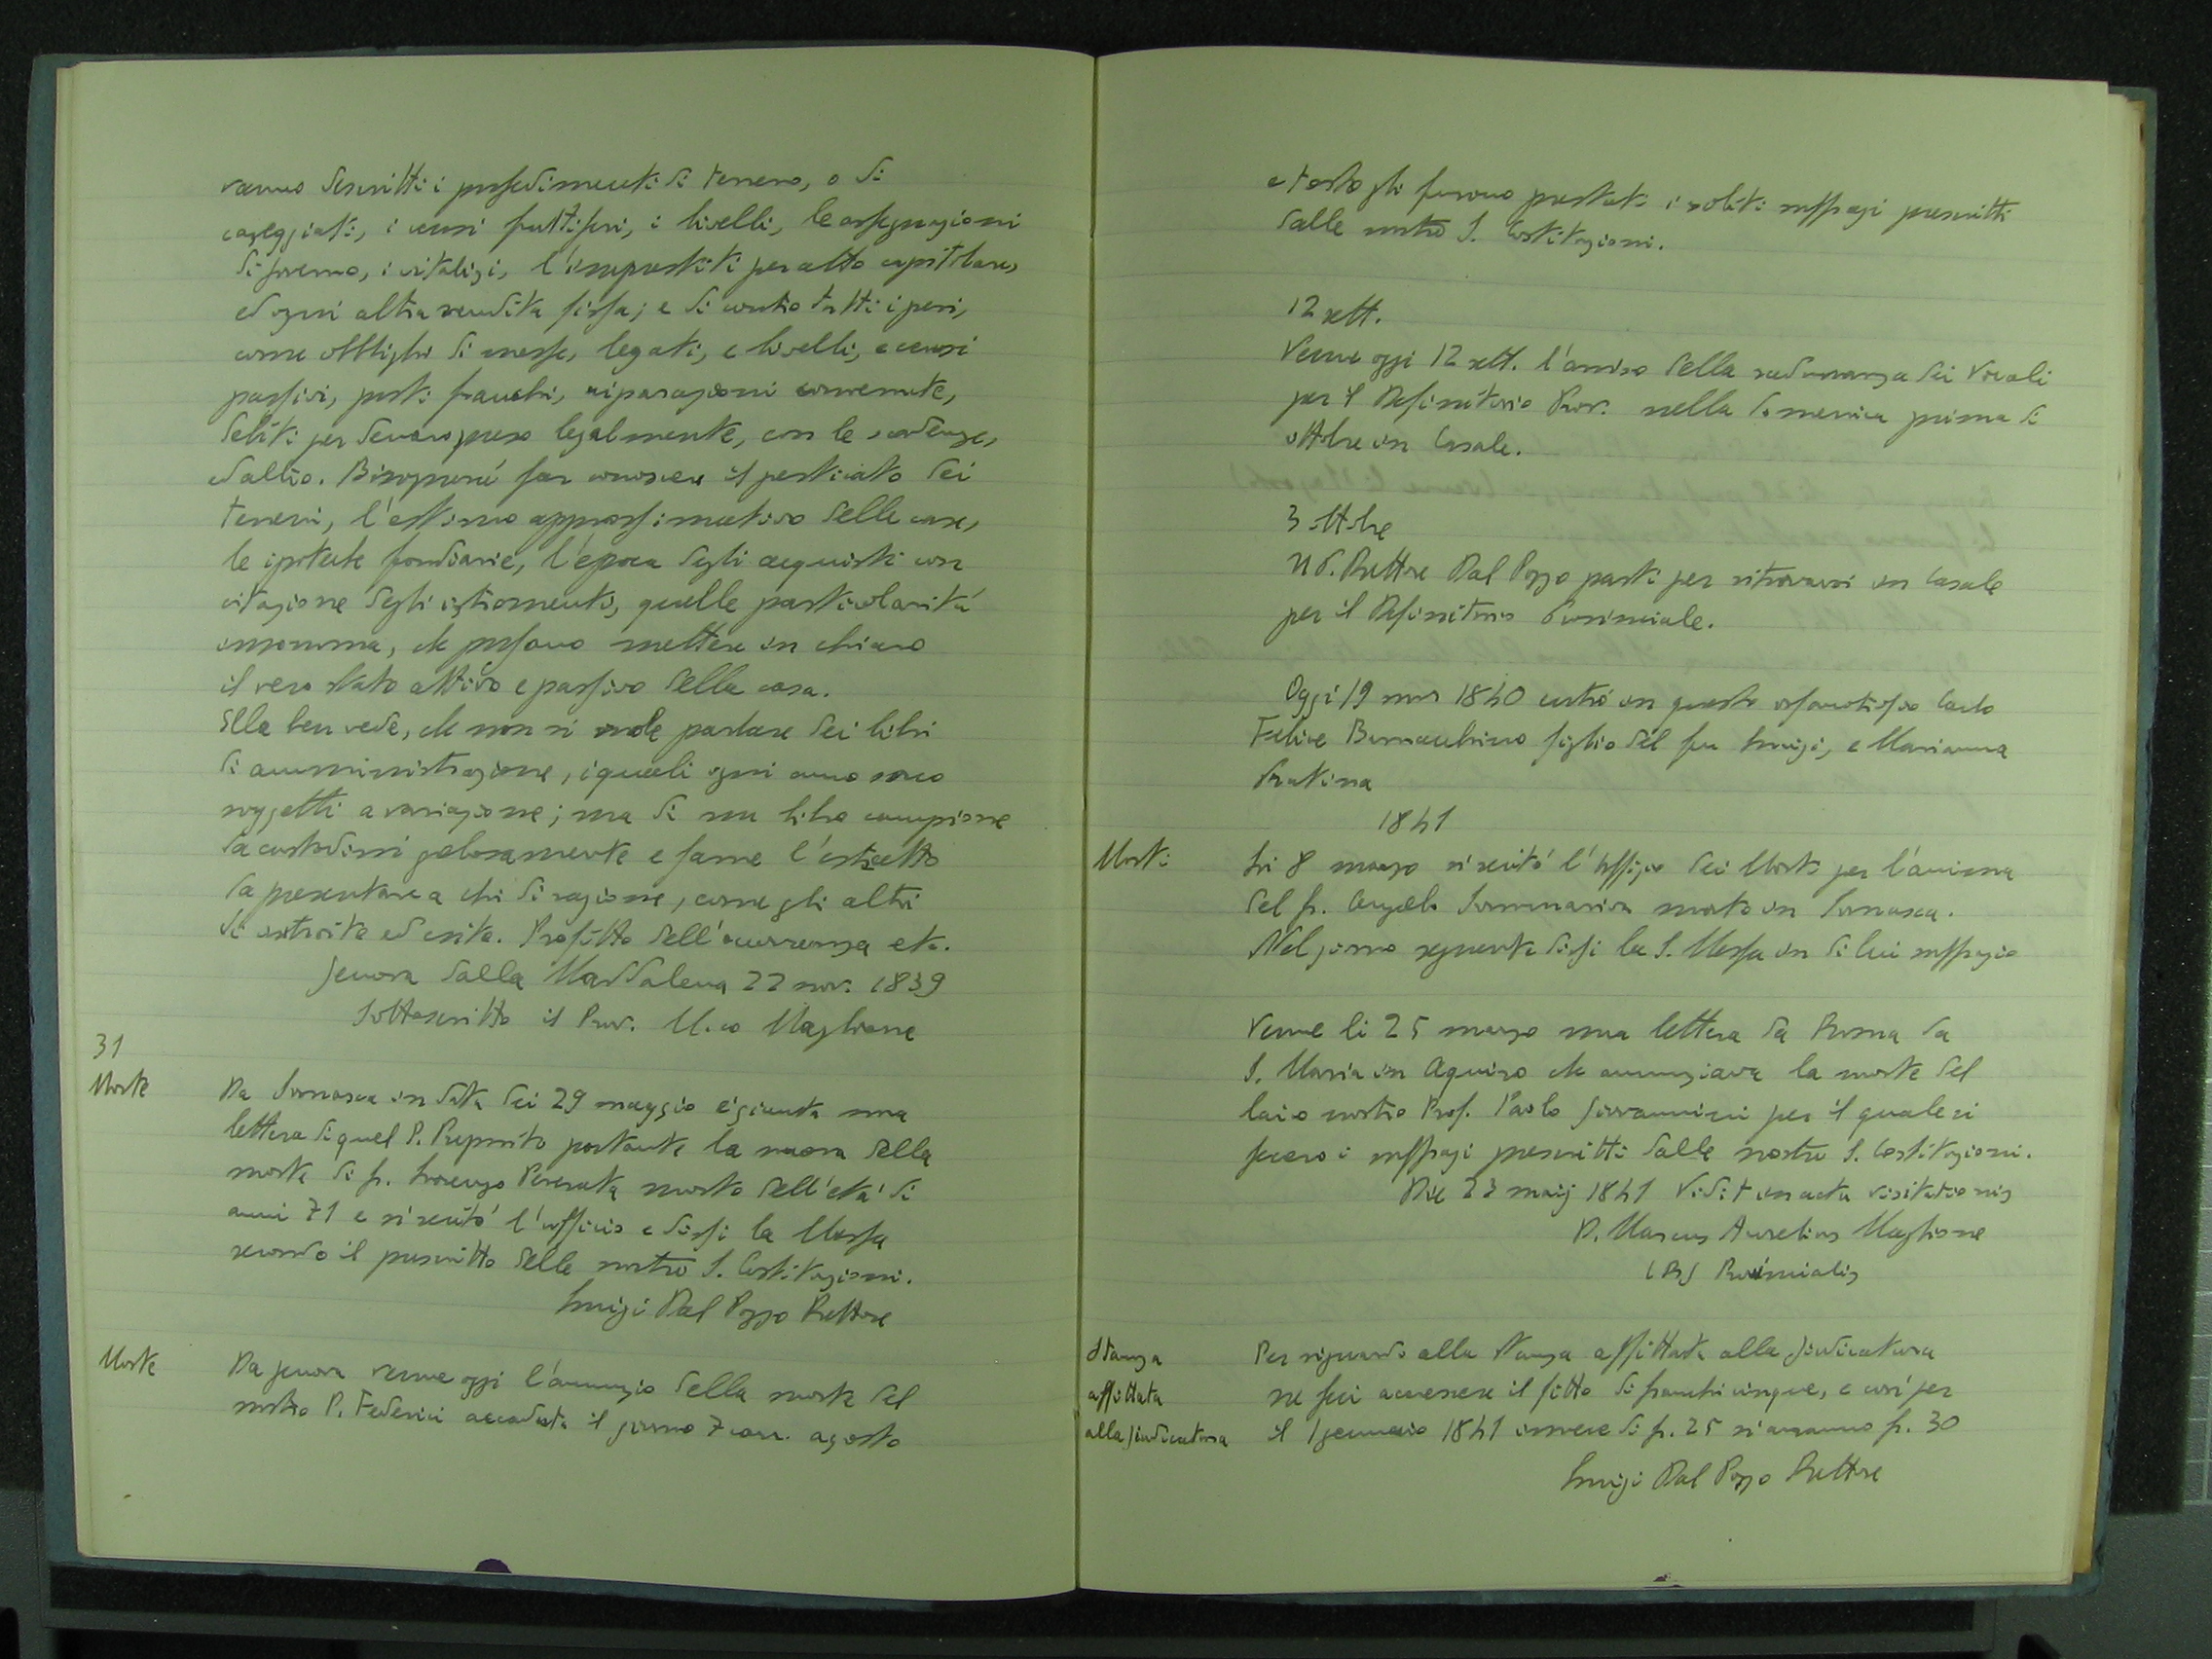 vanno descritti i possedimenti di terreno, o di
caseggiati, i censi fruttiferi, i livelli, le assegnazioni
di governo, i vitalizi, l'imprestiti per atto capitolare,
ed ogni altra rendita fissa; e di contro tutti i pesi,
come obblighi di messe, legati, e livelli, e censi
passivi, posti franchi, riparazioni convenute,
debiti per denaro preso legalmente, con le scadenze,
ed altro. Bisognerà far conoscere il perticato dei
terreni, l'estimo approssimativo delle case,
le ipoteche fondiarie, l'epoca degli acquisti con
citazione degli istromenti, quelle particolarità
insomma, che possono mettere in chiaro
il vero stato attivo e passivo della casa.
Ella ben vede, che non si vuole parlare dei libri
di amministrazione, i quali ogni anno sono
soggetti a variazione; ma di un libro campione
da custodirsi gelosamente e farne l'estratto
da presentare a chi di ragione, come gli altri
di introito ed esito. Profitto dell'occorrenza etc.
Genova dalla Maddalena 22 nov. 1839
Sottoscritto il Prov. M.co Maglione
31
Morte
Da Somasca in data dei 29 maggio è giunta una
lettera di quel P. Preposito portante la nuova della
morte di fr. Lorenzo morto dell'età di
anni 71 e si recitò l'officio e dissi la Messa
secondo il prescritto delle nostre S. Costituzioni.
Luigi Dal Pozzo Rettore
Morte
Da Genova venne oggi l'annunzio della morte del
nostro P. Federici accaduta il giorno 7 corr. agosto
e tosto gli furono prestati i soliti suffragi prescritti
dalle nostre S. Costituzioni.
12 sett.
Venne oggi 12 sett. l'avviso della radunanza dei Vocali
per il Definitorio Prov. nella domenica prima di
ottobre in Casale.
3 ottobre
Il P. Rettore Dal Pozzo partì per ritrovarsi in Casale
per il Definitorio Provinciale.
Oggi 19 nov 1840 entrò in questo orfanotrofio Carlo
Felice figlio del fu Luigi, e Marianna
Pratina
1841
Morti
Li 8 marzo si recitò l'Uffizio dei Morti per l'anima
del fr. Angelo Sommariva morto in Somasca.
Nel giorno seguente dissi la S. Messa in di lui suffragio
Venne li 25 marzo una lettera da Roma da
S. Maria in Aquiro che annunziava la morte del
laico nostro Prof. Paolo Giovannini per il quale si
fecero i suffragi prescritti dalle nostre S. Costituzioni.
Die 23 maij 1841 Vidit in actu visitationis
D. Marcus Aurelius Maglione
CRS Provincialis
Stanza
affittata
alla Giudicatura
Per riguardo alla stanza affittata alla Giudicatura
ne feci accrescere il fitto di franchi cinque, e così per
il 1 gennaio 1841 invece di fr. 25 si avranno fr. 30
Luigi Dal Pozzo Rettore